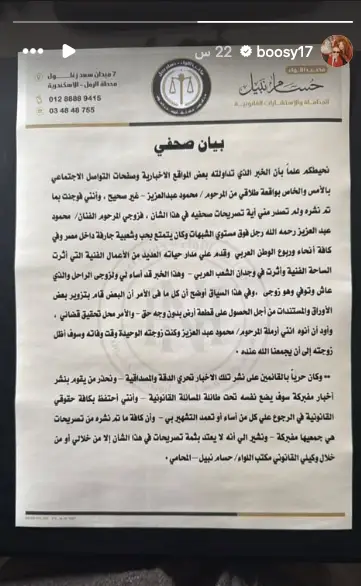 22 س
boosy17
7 ميدان سعد زغلول
محطة الرمل - الاسكندرية
012 8688 9415
03 48 46 755
حسام نبيل
بيان صحفي
نحيطكم علماً بأن الخبر الذي تداولته بعض المواقع الاخبارية وصفحات التواصل الاجتماعي
بالأمس والخاص بواقعة طلاقي من المرحوم / محمود عبدالعزيز - غير صحيح ، وأنني فوجئت بما
تم نشره ولم تصدر مني أية تصريحات صحفيه في هذا الشأن ، فزوجي المرحوم الفنان/ محمود
عبد العزيز رحمه الله رجل فوق مستوي الشبهات وكان يتمتع بحب وشعبية جارفة داخل مصر وفي
كافة أنحاء وربوع الوطن العربي وقدم علي مدار حياته العديد من الأعمال الفنية التي أثرت
الساحة الفنية وأثرت في وجدان الشعب العربي - وهذا الخبر قد أساء لي ولزوجي الراحل والذي
عاش وتوفي وهو زوجي ، وفي هذا السياق أوضح أن كل ما في الأمر أن البعض قام بتزوير بعض
الأوراق والمستندات من أجل الحصول علي قطعة أرض بدون وجه حق - والأمر محل تحقيق قضائي ،
وأود أن أنوه انني أرملة المرحوم/ محمود عبد العزيز وكنت زوجته الوحيدة وقت وفاته وسوف أظل
زوجته إلى أن يجمعنا الله عنده .
** وكان حرياً بالقائمين على نشر تلك الاخبار تحري الدقة والمصداقية - ونحذر من يقوم بنشر
أخبار مفبركة سوف يضع نفسه تحت طائلة المسائلة القانونية - وأنني أحتفظ بكافة حقوقي
القانونية في الرجوع علي كل من أساء أو تعمد التشهير بي - وأن كافة ما تم نشره من تصريحات
هي جميعها مفبركة - ونشير الي أنه لا يعتد بثمة تصريحات في هذا الشان إلا من خلالي أو من
خلال وكيلي القانوني مكتب اللواء/ حسام نبيل - المحامي .